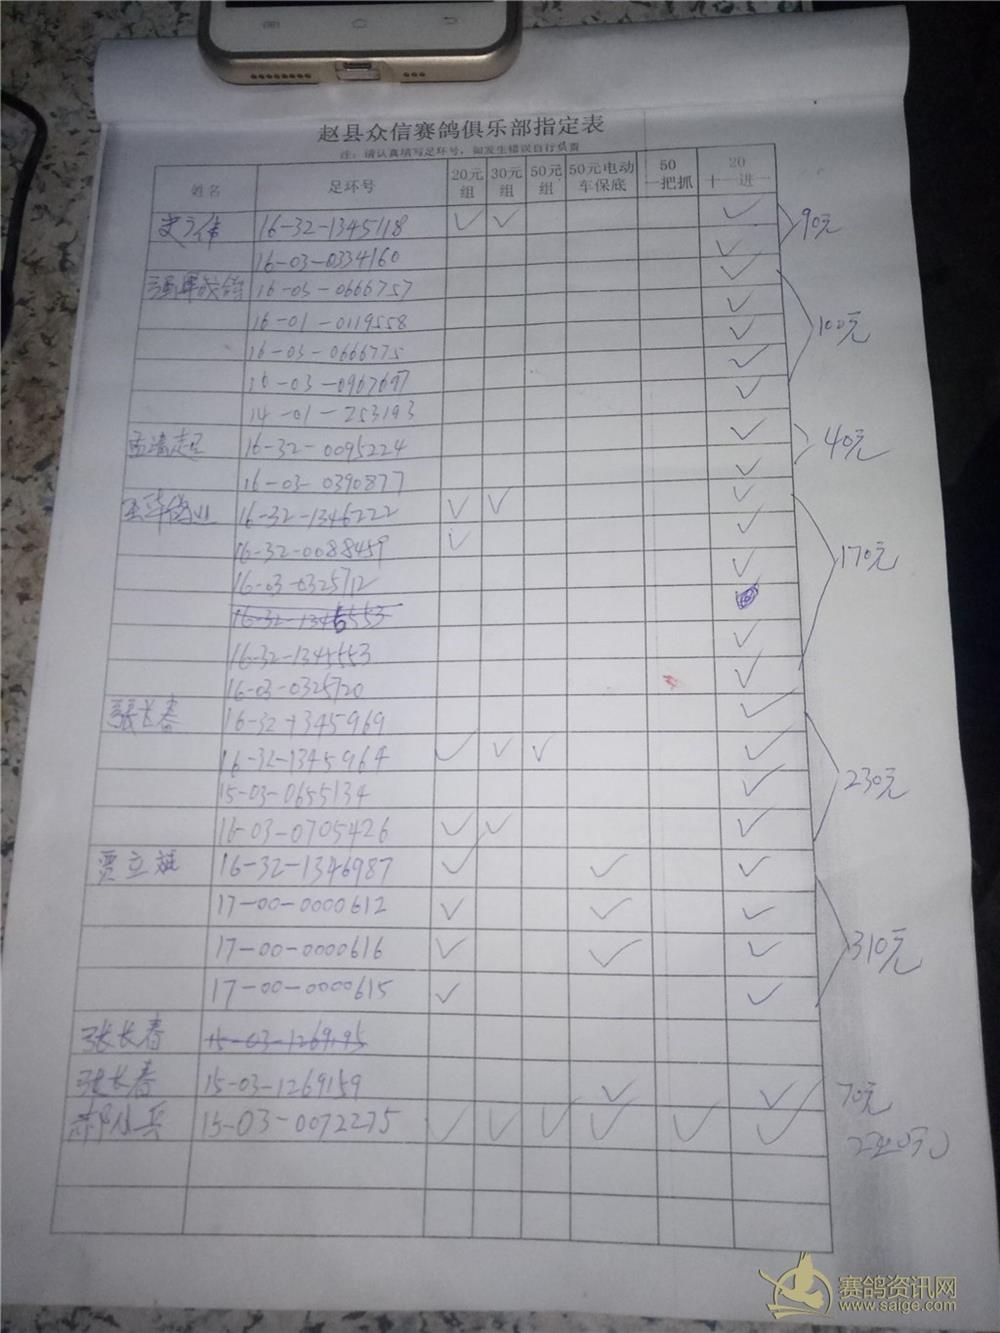 赵县众信赛鸽俱乐部指定表
注：请认真填写足环号，如发生错误自行负责
姓名 足环号 20元组 30元组 50元组 50元电动车保底 50一把抓 20十一进一
史立伟 16-32-1345118 ✓ ✓ ✓ 90元
16-03-0334160 ✓
16-03-0666757 ✓
16-01-0119558 ✓ 100元
16-03-0666775 ✓
16-03-0967697 ✓
14-01-253193 ✓
16-32-0095224 ✓ 40元
16-03-0390877 ✓
16-32-1346222 ✓ ✓ ✓
16-32-0088459 ✓ ✓
16-03-0325712 ✓ 170元
16-32-1345553
16-32-1345553 ✓
16-03-0325720 ✓
张长春 16-32-1345969 ✓
16-32-1345964 ✓ ✓ ✓ ✓
15-03-0655134 ✓ 230元
16-03-0705426 ✓ ✓ ✓
贾立斌 16-32-1346987 ✓ ✓ ✓
17-00-0000612 ✓ ✓ ✓
17-00-0000616 ✓ ✓ ✓ 310元
17-00-0000615 ✓ ✓
张长春 15-03-1269195
张长春 15-03-1269159 ✓ ✓ 70元
15-03-0072275 ✓ ✓ ✓ ✓ ✓ ✓
赛鸽资讯网
www.saige.com